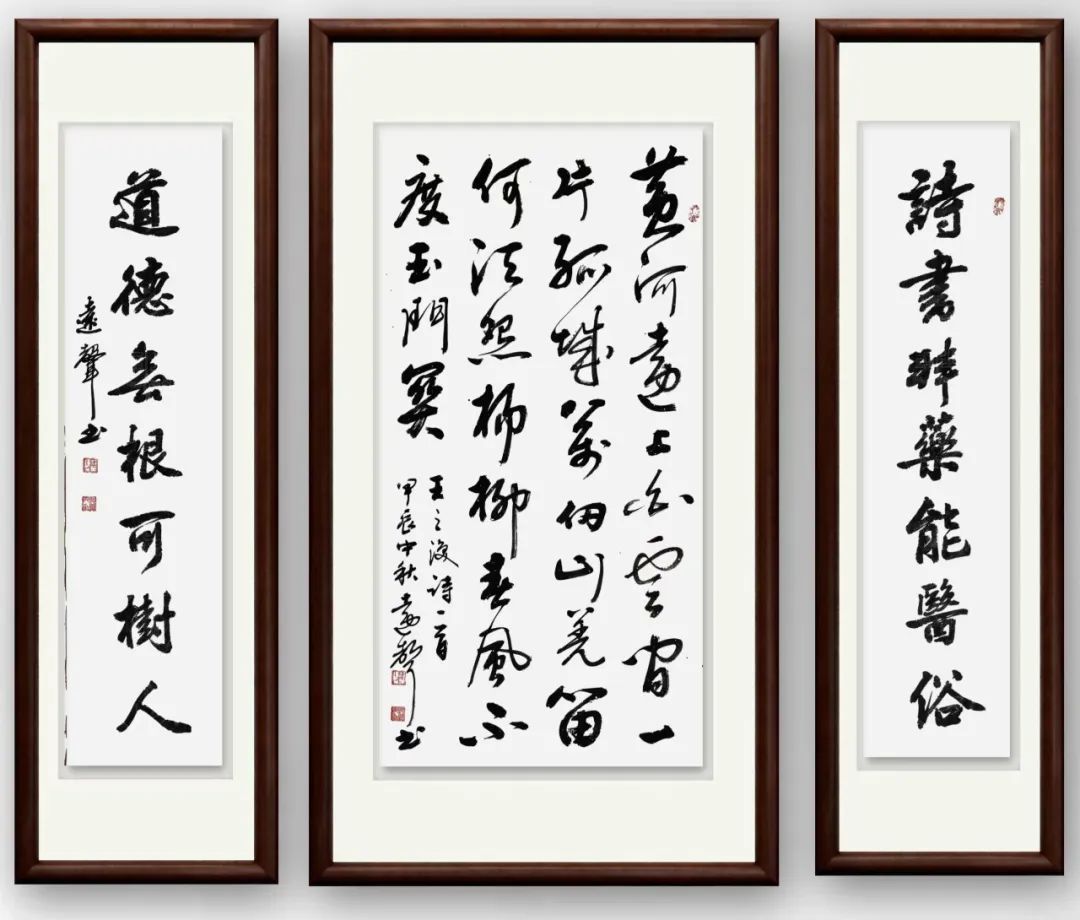 詩書非藥能醫俗
黄河遠上白雲間一
片孤城萬仞山羌笛
何須怨楊柳春風不
度玉門關
王之渙詩一首
甲辰中秋遠聲书
道德無根可樹人
遠聲书